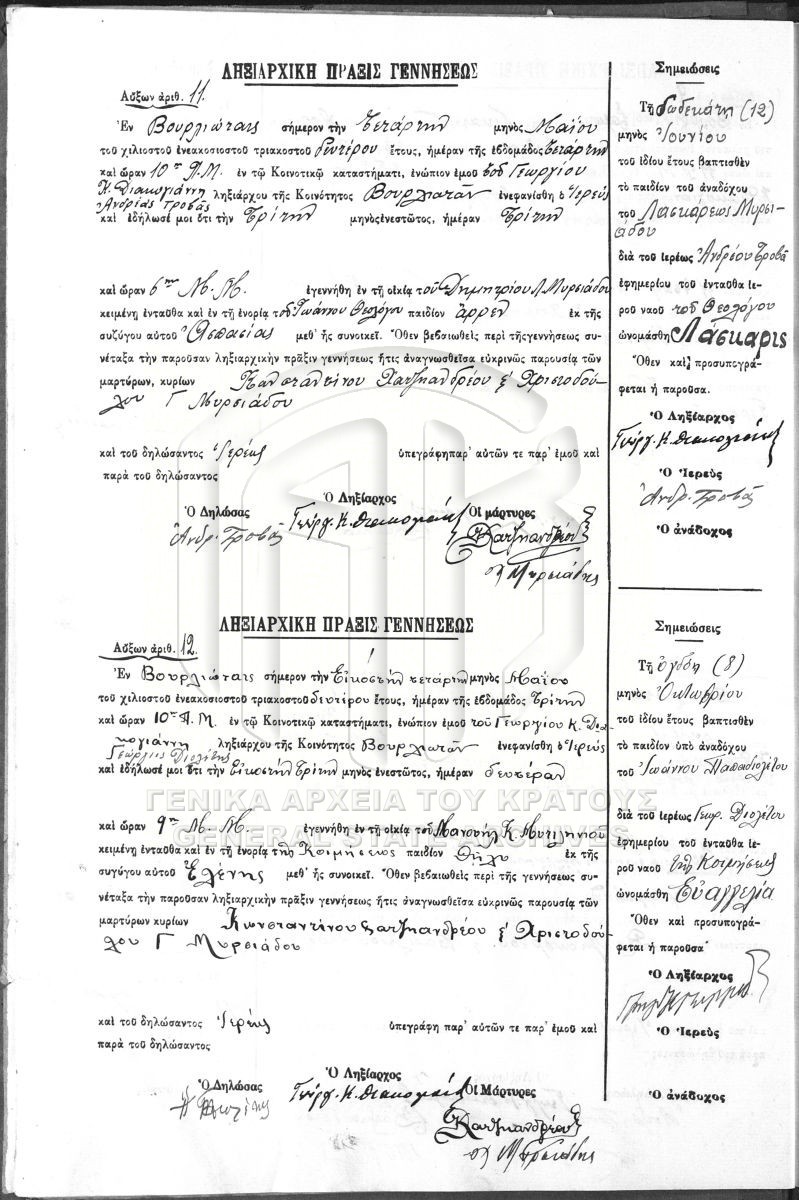 ΛΗΞΙΑΡΧΙΚΗ ΠΡΑΞΙΣ ΓΕΝΝΗΣΕΩΣ
Αὔξων ἀριθ. 11.
Ἐν Βουρλιώταις σήμερον τὴν τετάρτην μηνὸς Μαΐου
τοῦ χιλιοστοῦ ἐνεακοσιοστοῦ τριακοστοῦ δευτέρου ἔτους, ἡμέραν τῆς ἑβδομάδος τετάρτην
καὶ ὥραν 10ην Π.Μ. ἐν τῷ Κοινοτικῷ καταστήματι, ἐνώπιον ἐμοῦ τοῦ Γεωργίου
Κ. Διακογιάννη ληξιάρχου τῆς Κοινότητος Βουρλιωτῶν ἐνεφανίσθη ὁ Ἱερεὺς
Ἀνδρέας Τροβᾶς
καὶ ἐδήλωσέ μοι ὅτι τὴν Τρίτην μηνὸς ἐνεστῶτος, ἡμέραν Τρίτην
καὶ ὥραν 6ην Μ.Μ. ἐγεννήθη ἐν τῇ οἰκίᾳ τοῦ Δημητρίου Λ. Μυρσιάδου
κειμένῃ ἐνταῦθα καὶ ἐν τῇ ἐνορίᾳ τοῦ Ἰωάννου Θεολόγου παιδίον ἄρρεν ἐκ τῆς
συζύγου αὐτοῦ Ἀσπασίας μεθ' ἧς συνοικεῖ. Ὅθεν βεβαιωθεὶς περὶ τῆς γεννήσεως συ-
νέταξα τὴν παροῦσαν ληξιαρχικὴν πρᾶξιν γεννήσεως ἥτις ἀναγνωσθεῖσα εὐκρινῶς παρουσίᾳ τῶν
μαρτύρων, κυρίων Κωνσταντίνου Χατζηανδρέου & Χριστοδού-
λου Γ Μυρσιάδου
καὶ τοῦ δηλώσαντος Ἱερέως ὑπεγράφη παρ' αὐτῶν τε παρ' ἐμοῦ καὶ
παρὰ τοῦ δηλώσαντος
Ὁ Δηλώσας Ὁ Ληξίαρχος Οἱ μάρτυρες
Ἀνδρ. Τροβᾶς Γεώργ. Κ. Διακογιάννης Κ Χατζηανδρέου
Χ Μυρσιάδης
Σημειώσεις
Τῇ δωδεκάτῃ (12)
μηνὸς Ἰουνίου
τοῦ ἰδίου ἔτους βαπτισθὲν
τὸ παιδίον τοῦ ἀναδόχου
τοῦ Λασκάρεως Μυρσι-
άδου
διὰ τοῦ ἱερέως Ἀνδρέου Τροβᾶ
ἐφημερίου τοῦ ἐνταῦθα ἱε-
ροῦ ναοῦ τοῦ Θεολόγου
ὠνομάσθη Λάσκαρις
Ὅθεν καὶ προσυπογρά-
φεται ἡ παροῦσα.
Ὁ Ληξίαρχος
Γεώργ. Κ. Διακογιάννης
Ὁ Ἱερεὺς
Ἀνδρ. Τροβᾶς
Ὁ ἀνάδοχος
ΛΗΞΙΑΡΧΙΚΗ ΠΡΑΞΙΣ ΓΕΝΝΗΣΕΩΣ
Αὔξων ἀριθ. 12.
Ἐν Βουρλιώταις σήμερον τὴν Εἰκοστὴν τετάρτην μηνὸς Μαΐου
τοῦ χιλιοστοῦ ἐνεακοσιοστοῦ τριακοστοῦ δευτέρου ἔτους, ἡμέραν τῆς ἑβδομάδος Τρίτην
καὶ ὥραν 10ην Π.Μ. ἐν τῷ Κοινοτικῷ καταστήματι, ἐνώπιον ἐμοῦ τοῦ Γεωργίου Κ. Δια-
κογιάννη ληξιάρχου τῆς Κοινότητος Βουρλιωτῶν ἐνεφανίσθη ὁ Ἱερεὺς
Γεώργιος Διολίτης
καὶ ἐδήλωσέ μοι ὅτι τὴν εἰκοστὴν Τρίτην μηνὸς ἐνεστῶτος, ἡμέραν δευτέραν
ΓΕΝΙΚΑ ΑΡΧΕΙΑ ΤΟΥ ΚΡΑΤΟΥΣ
GENERAL STATE ARCHIVES
καὶ ὥραν 9ην Μ.Μ. ἐγεννήθη ἐν τῇ οἰκίᾳ τοῦ Μανουὴλ Κ. Μυτιληνιοῦ
κειμένῃ ἐνταῦθα καὶ ἐν τῇ ἐνορίᾳ τῆς Κοιμήσεως παιδίον θῆλυ ἐκ τῆς
συζύγου αὐτοῦ Ἑλένης μεθ' ἧς συνοικεῖ. Ὅθεν βεβαιωθεὶς περὶ τῆς γεννήσεως συ-
νέταξα τὴν παροῦσαν ληξιαρχικὴν πρᾶξιν γεννήσεως ἥτις ἀναγνωσθεῖσα εὐκρινῶς παρουσίᾳ τῶν
μαρτύρων κυρίων Κωνσταντίνου Χατζηανδρέου & Χριστοδού-
λου Γ Μυρσιάδου
καὶ τοῦ δηλώσαντος Ἱερέως ὑπεγράφη παρ' αὐτῶν τε παρ' ἐμοῦ καὶ
παρὰ τοῦ δηλώσαντος
Ὁ Δηλώσας Ὁ Ληξίαρχος Οἱ Μάρτυρες
Γεώργ. Κ. Διακογιάννης Κ Χατζηανδρέου
Χ Μυρσιάδης
Σημειώσεις
Τῇ ὀγδόῃ (8)
μηνὸς Ὀκτωβρίου
τοῦ ἰδίου ἔτους βαπτισθὲν
τὸ παιδίον ὑπὸ ἀναδόχου
τοῦ Ἰωάννου Παπαδιολίτου
διὰ τοῦ ἱερέως Γεωρ. Διολίτου
ἐφημερίου τοῦ ἐνταῦθα ἱε-
ροῦ ναοῦ τῆς Κοιμήσεως
ὠνομάσθη Εὐαγγελία
Ὅθεν καὶ προσυπογρά-
φεται ἡ παροῦσα
Ὁ Ληξίαρχος
Ὁ Ἱερεὺς
Ὁ ἀνάδοχος